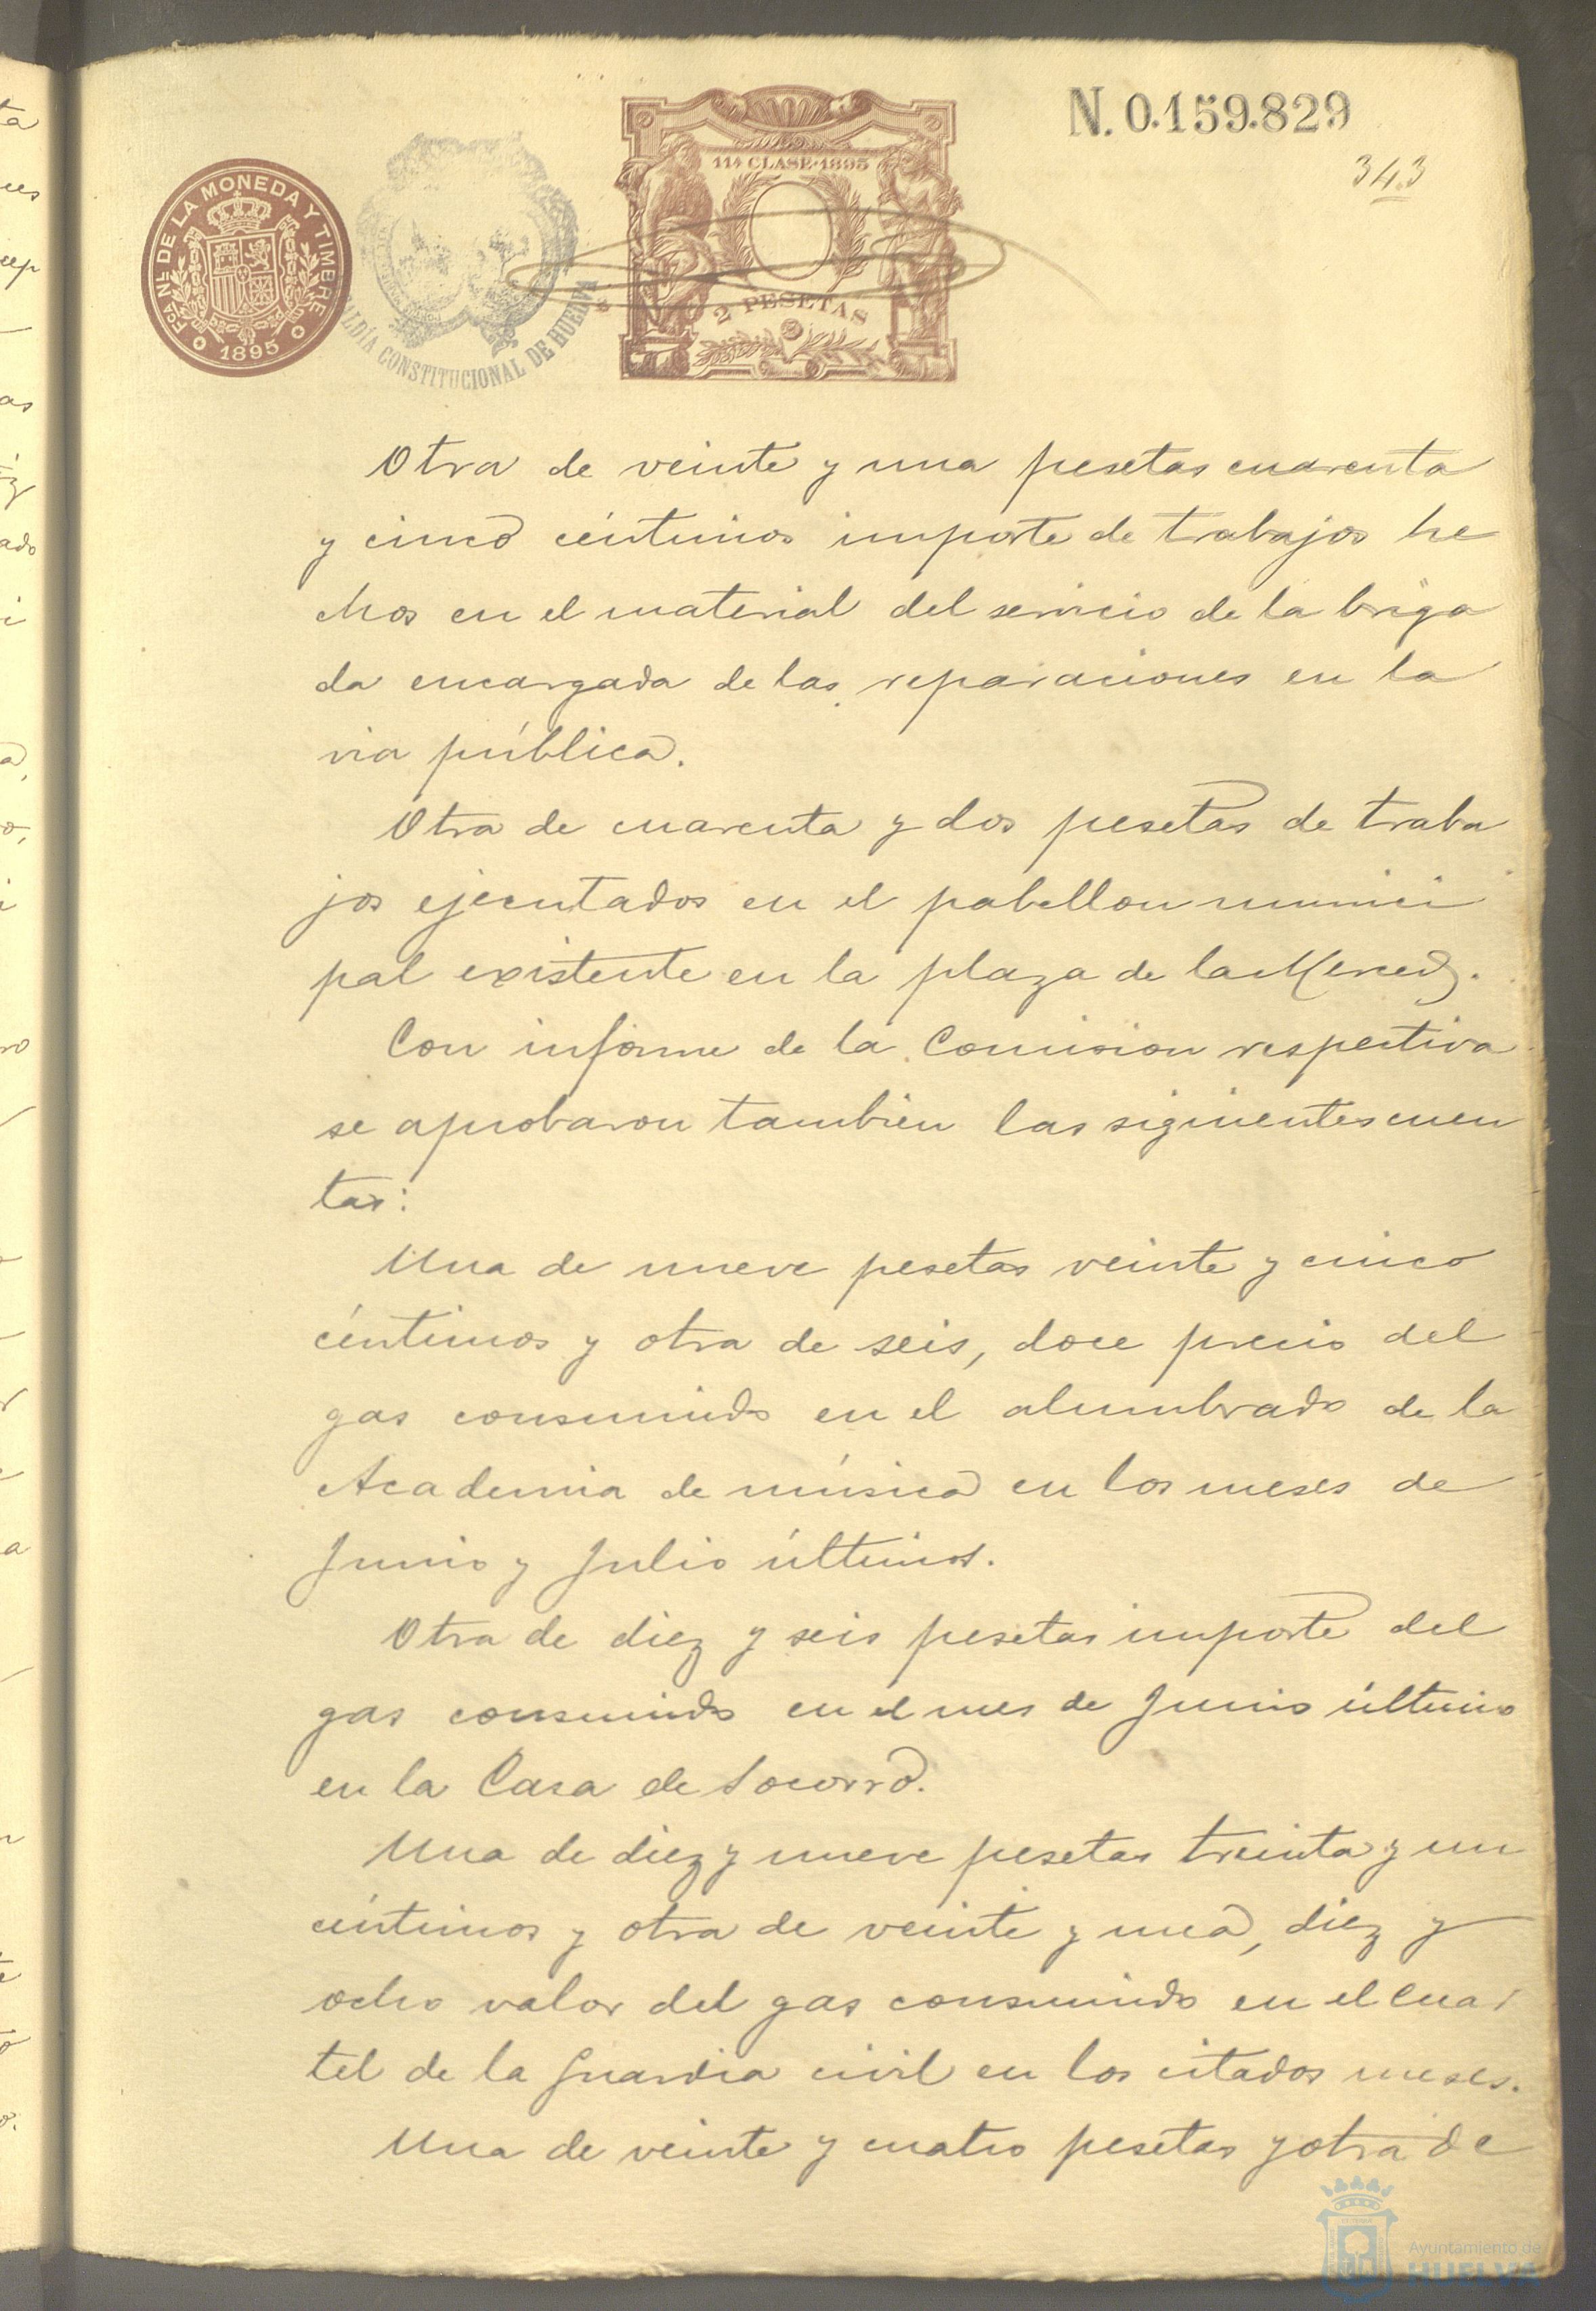 N. 0.159.829
343
FCA NL DE LA MONEDA Y TIMBRE
1895
ALDÍA CONSTITUCIONAL DE HUELVA
11ª CLASE·1895
2 PESETAS
Otra de veinte y una pesetas cuarenta
y cinco céntimos importe de trabajos he
chos en el material del servicio de la briga
da encargada de las reparaciones en la
via pública.
Otra de cuarenta y dos pesetas de traba
jos ejecutados en el pabellon munici
pal existente en la plaza de la Merced.
Con informe de la Comision respectiva
se aprobaron tambien las siguientes cuen
tas:
Una de nueve pesetas veinte y cinco
céntimos y otra de seis, doce precio del
gas consumido en el alumbrado de la
Academia de música en los meses de
Junio y Julio últimos.
Otra de diez y seis pesetas importe del
gas consumido en el mes de Junio último
en la Casa de Socorro.
Una de diez y nueve pesetas treinta y un
céntimos y otra de veinte y una, diez y
ocho valor del gas consumido en el Cuar
tel de la Guardia civil en los citados meses.
Una de veinte y cuatro pesetas y otra de
Ayuntamiento de
HUELVA